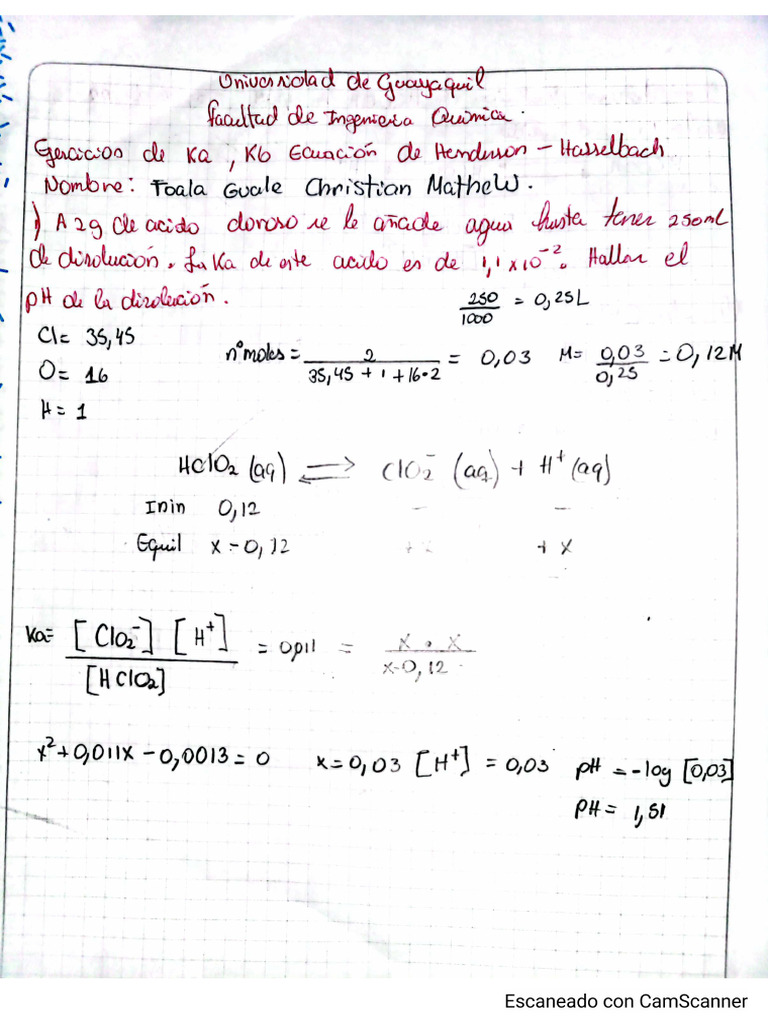 Universidad de Guayaquil
Facultad de Ingenieria Quimica.
Gercicios de Ka, Kb Ecuación de Henderson - Hasselbach
Nombre: Toala Guale Christian Mathew.
1) A 2g de acido cloroso se le añade agua hasta tener 250mL
de disolución. La Ka de este acido es de 1,1 x 10⁻². Hallar el
pH de la disolución.
250/1000 = 0,25L
Cl= 35,45
O= 16
H= 1
n° moles = 2/(35,45 + 1 + 16·2) = 0,03 M= 0,03/0,25 = 0,12M
HClO₂ (aq) ⇌ ClO₂⁻ (aq) + H⁺ (aq)
Inin 0,12 - -
Equil x-0,12 +x +x
Ka= [ClO₂⁻] [H⁺]/[HClO₂] = 0,011 = x · x/x-0,12
x²+0,011x-0,0013=0 x=0,03 [H⁺]=0,03 pH = -log [0,03]
pH= 1,51
Escaneado con CamScanner